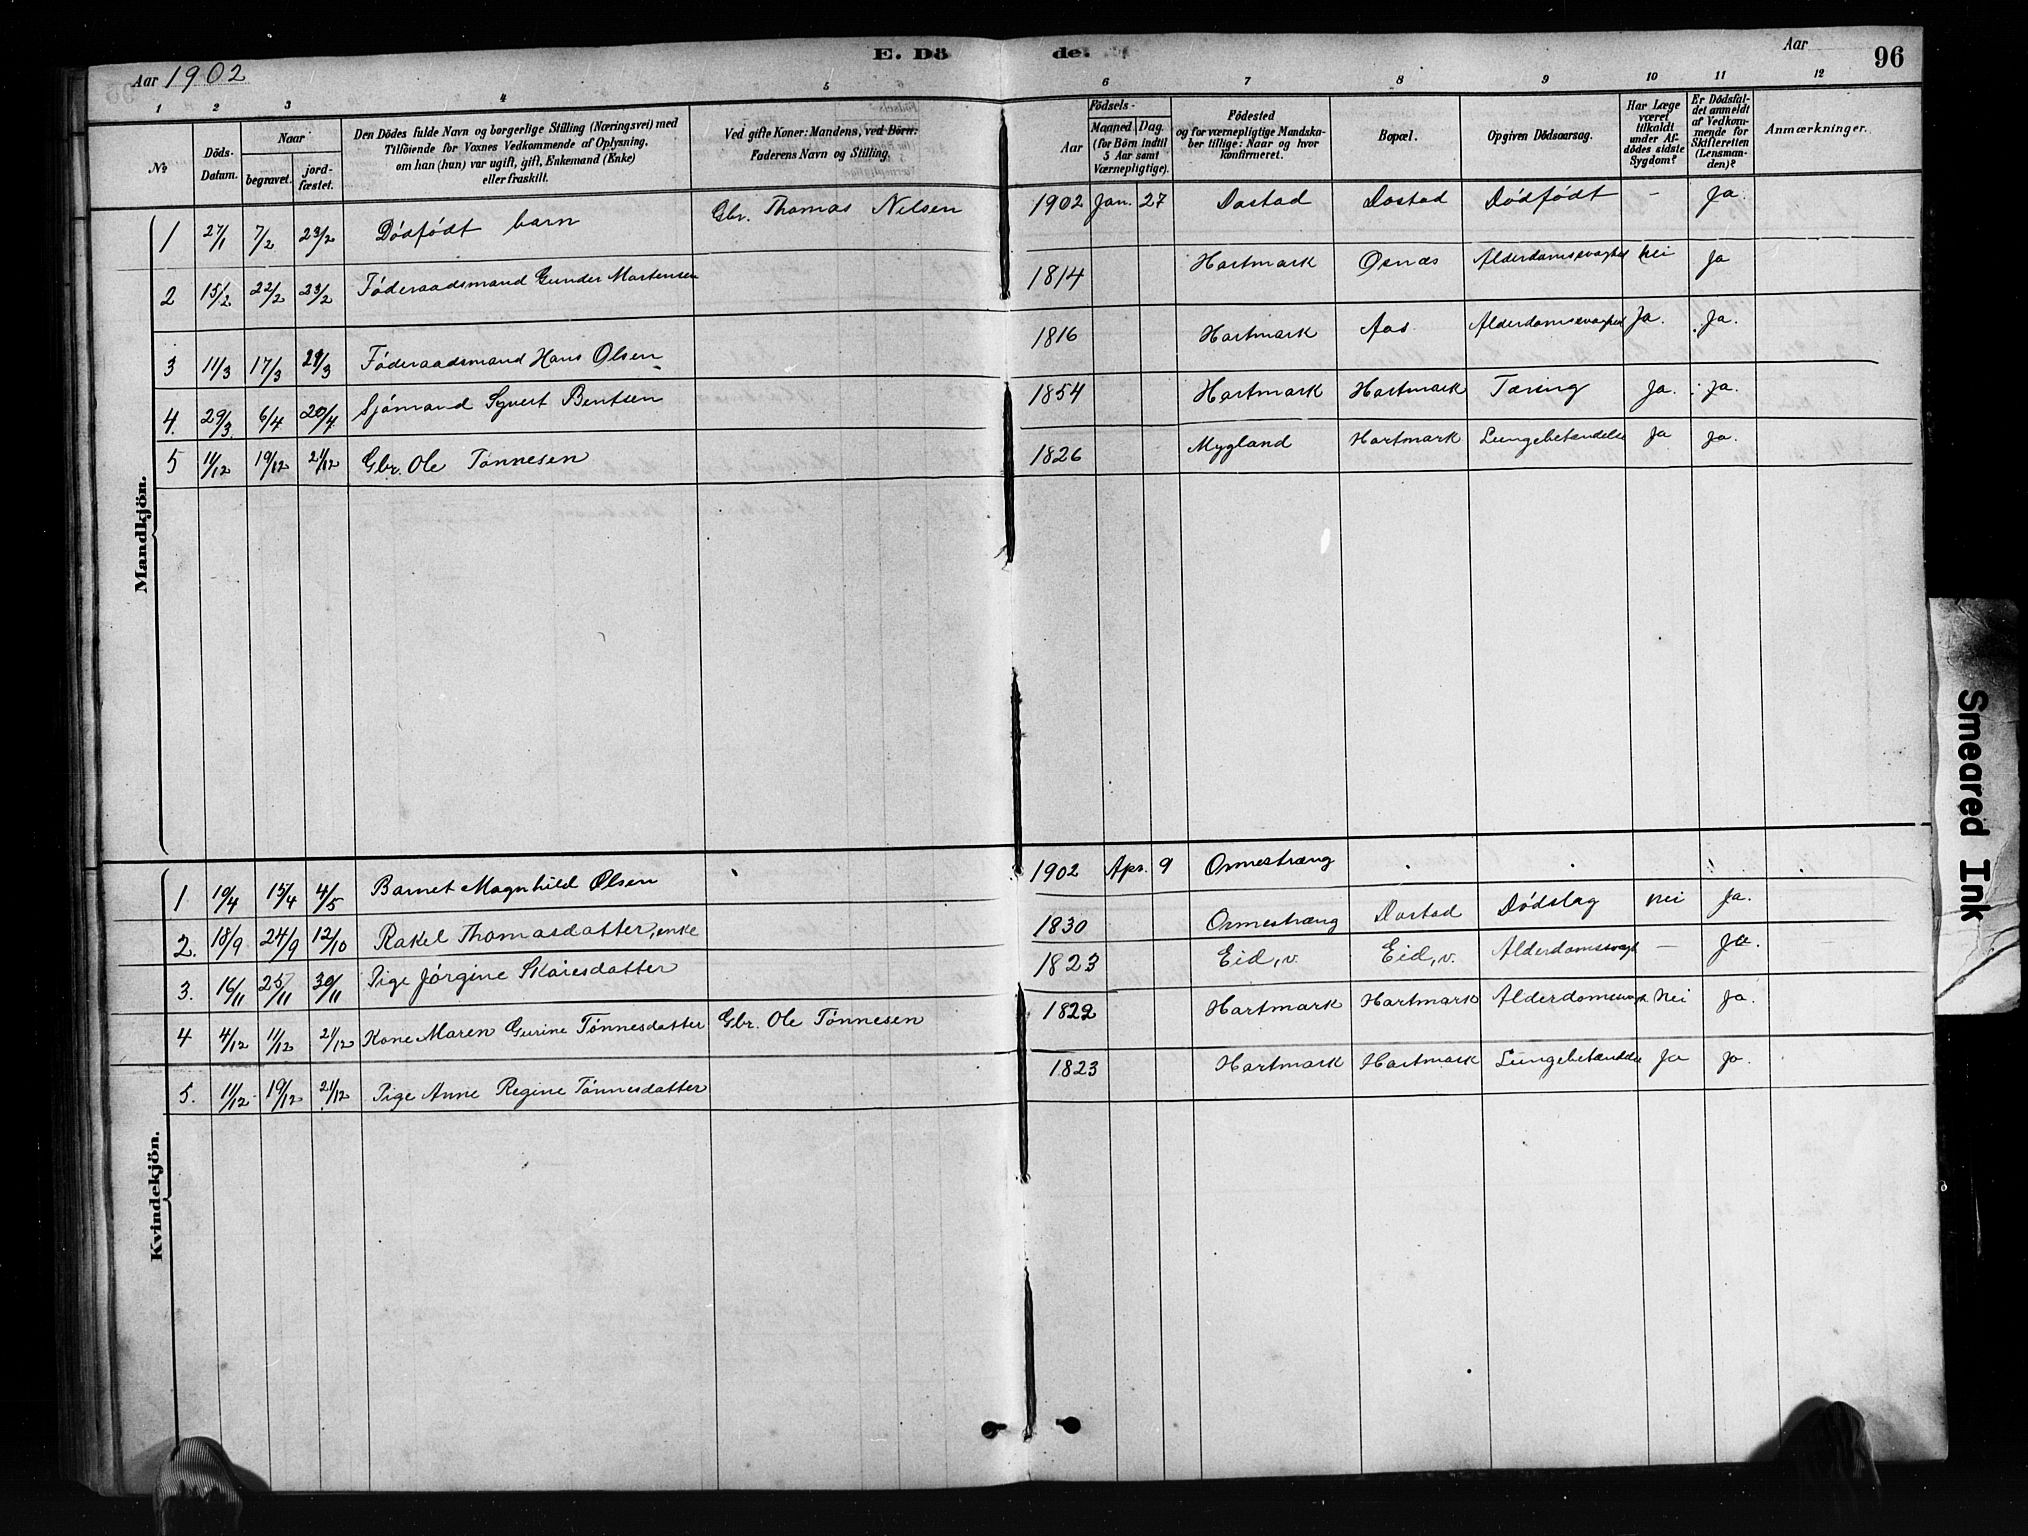 Aar 1902
E. Dö
de.
Aar
96
1 2 3 4 5 6 7 8 9 10 11 12
No
Döds-Datum.
Naar
begravet.
jord-fæstet.
Den Dödes fulde Navn og borgerlige Stilling (Næringsvei) med
Tilföiende for Voxnes Vedkommende af Oplysning,
om han (hun) var ugift, gift, Enkemand (Enke)
eller fraskilt.
Ved gifte Koner: Mandens, ved Börn:
Faderens Navn og Stilling.
Födsels-
Aar
Maaned. Dag.
(for Börn indtil
5 Aar samt
Værnepligtige).
Födested
og for værnepligtige Mandska-
ber tillige: Naar og hvor
konfirmeret.
Bopæl.
Opgiven Dödsaarsag.
Har Læge
været
tilkaldt
under Af-
dödes sidste
Sygdom?
Er Dödsfal-
det anmeldt
af Vedkom-
mende for
Skifteretten
(Lensman-
den)?
Anmærkninger.
Mandkjön.
1 27/1 7/2 23/2 Dødfødt barn Gbr. Thomas Nilsen 1902 Jan. 27 Dastad Dastad Dødfødt - Ja.
2 15/2 22/2 23/2 Føderaadsmand Gunder Martensen 1814 Hartmark Osnæs Alderdomssvaghed Nei Ja
3 11/3 17/3 Føderaadsmand Hans Olsen 1816 Hartmark Aas Alderdomssvaghed Ja. Ja.
4. 29/3. 6/4 20/4 Sjømand Syvert Bentsen 1854 Hartmark Hartmark Tæring Ja. Ja.
5 11/12 19/12 21/12 Gbr. Ole Tønnesen 1826 Mygland Hartmark Lungebetændelse Ja Ja.
Kvindekjön.
1 10/4 15/4 4/5 Barnet Magnhild Olsen 1902 Apr. 9 Ormestræng
2. 18/9 24/9 12/10 Rakel Thomasdatter, enke 1830 Ormestræng Dastad Dødslag Nei Ja.
3. 16/11 25/11 30/11 Pige Jørgine Skaresdatter 1823 Eid, v. Eid, v. Alderdomssvagh - Ja.
4 4/12 11/12 21/12 Kone Maren Gurine Tønnesdatter Gbr. Ole Tønnesen 1822 Hartmark Hartmark Alderdomssvagh. Nei Ja.
5. 11/12 19/12 21/12 Pige Anne Regine Tønnesdatter 1823 Hartmark Hartmark Lungebetændelse Ja Ja.
Smeared Ink